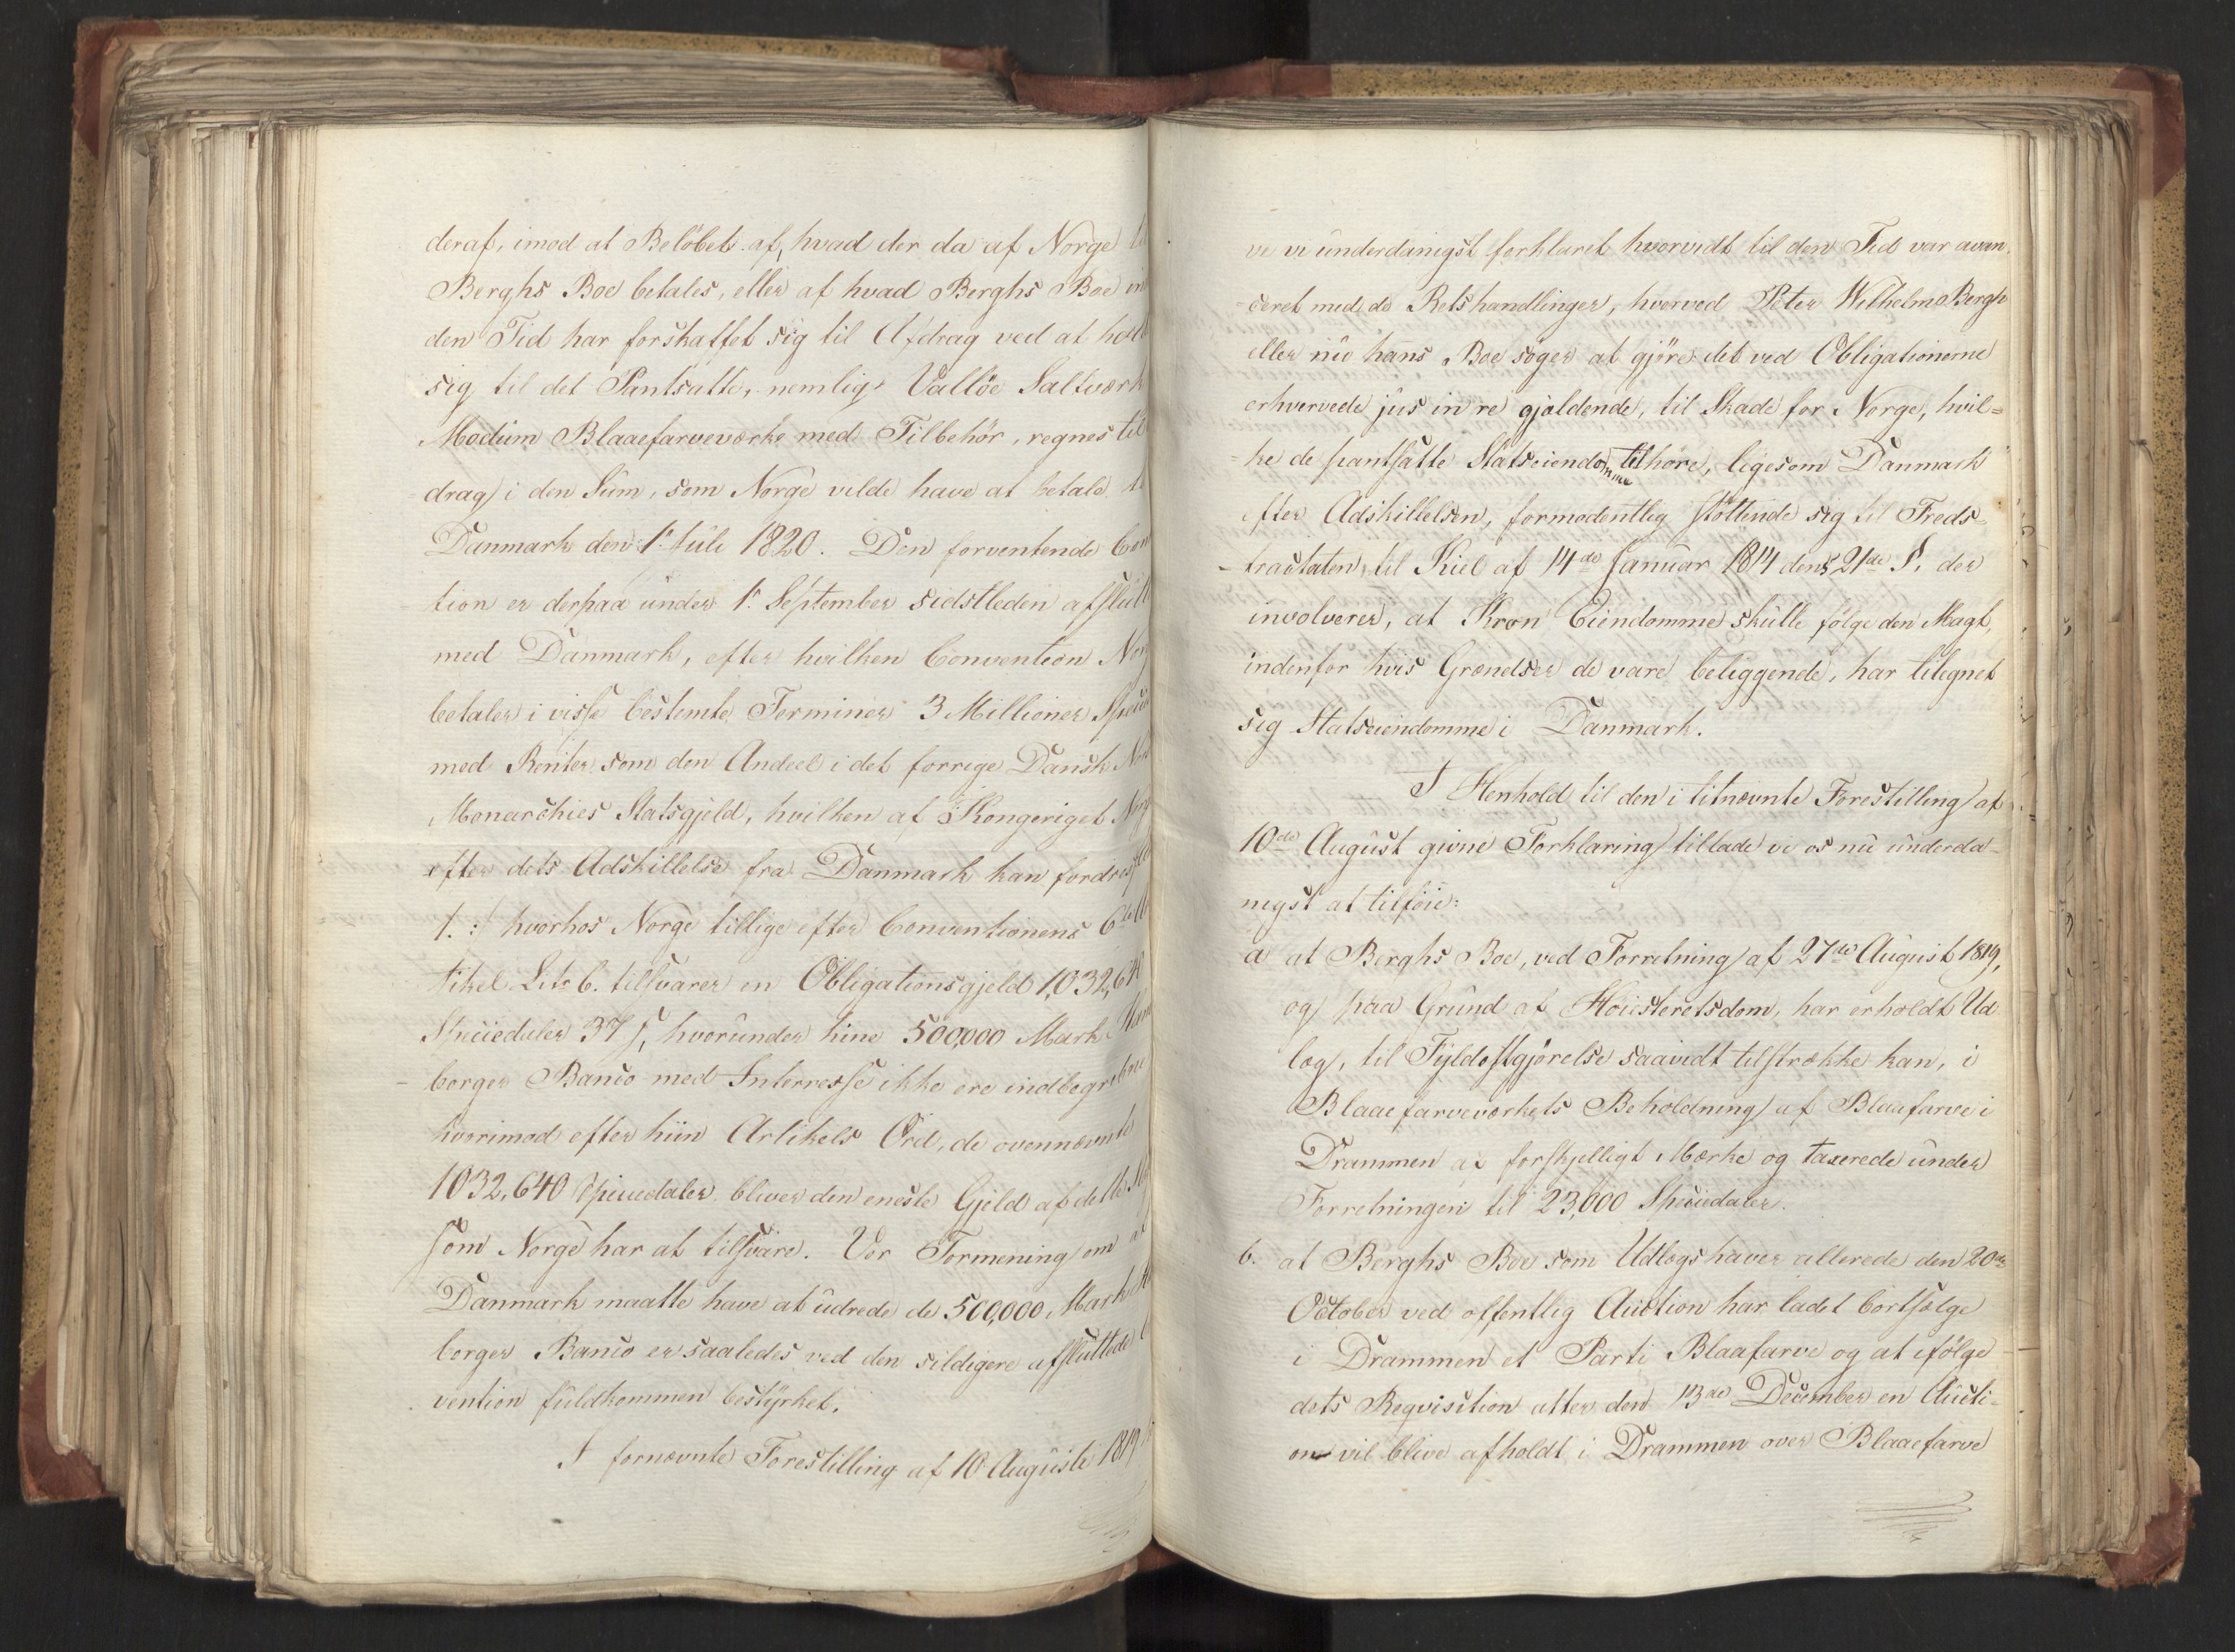 deraf, imod at Beløbet af, hvad der da af Norge
Berghs Boe betales, eller af hvad Berghs Boe in
den Tid har forskaffet sig til Afdrag ved at hol
sig til det Pantsatte, nemlig Valløe Saltværk
Modum Blaaefarveværke med Tilbehör, regnes til
drag i den Sum, som Norge vilde have at betale
Danmark den 1ste Juli 1820. Den forventende Con
tion er derpaa under 1. September sidstleden afslutt
med Danmark, efter hvilken Convention Nor
betaler i visse bestemte Terminer 3 Millioner Specie
med Renter som den Andeel i det forrige Dansk No
Monarchies Statsgjeld, hvilken af Kongeriget Norg
efter dets Adskillelse fra Danmark kan fordres
/: hvorhos Norge tillige efter Conventionens 6te
tikel Litr b. tilsvarer en Obligationsgjeld 1,032,640
Speciedaler 37 s, hvorunder hine 500,000 Mark Ham
borger Banco med Interesse ikke ere indbegrebne
hvorimod efter hiin Artikels Ord, de ovennævnte
1032,640 Speciedaler bliver den eneste Gjeld af dette
som Norge har at tilsvare. Vor Formening om at
Danmark maatte have at udrede de 500,000 Mark
borger Banco er saaledes ved den sildigere afsluttede
vention fuldkommen bestyrket.
I fornævnte Forestilling af 10 Auguste 1819
ve vi underdanigst forklaret hvorvidt til den Tid var avan
ceret med de Retshandlinger, hvorved Peter Wilhelm Bergh
eller nu hans Boe söger at gjöre det ved Obligationerne
erhvervede jus in re gjældende, til Skade for Norge, hvil=
ke de pantsatte Statseiendomme tilhöre, ligesom Danmark
efter Adskillelsen, formodentlig støttende sig til Freds=
tractaten til Kiel af 14de Januar 1814 dens 21de §. der
involverer, at Kron Eiendomme skulle fölge den Magt,
indenfor hvis Grændser de vare beliggende, har tilegnet
sig Statseiendomme i Danmark.
I Henhold til den i titnævnte Forestilling af
10de August givne Forklaring tillade vi os nu underda=
nigst at tilföie:
a at Berghs Boe, ved Forretning af 27de August 1819,
og paa Grund af Høiesteretsdom, har erholdt Ud
læg, til Fyldestgjörelse saavidt tilstrække kan, i
Blaaefarveværkets Beholdning af Blaafarve i
Drammen af forskjelligt Mærke og taxerede under
Forretningen til 23,000 Speciedaler.
b. at Berghs Boe som Udlægshaver allerede den 20de
October ved offentlig Auction har ladet bortsælge
i Drammen et Parti Blaafarve og at ifölge
dets Reqvisition atter den 13de December en Aucti=
on vil blive afholdt i Drammen over Blaaefarve